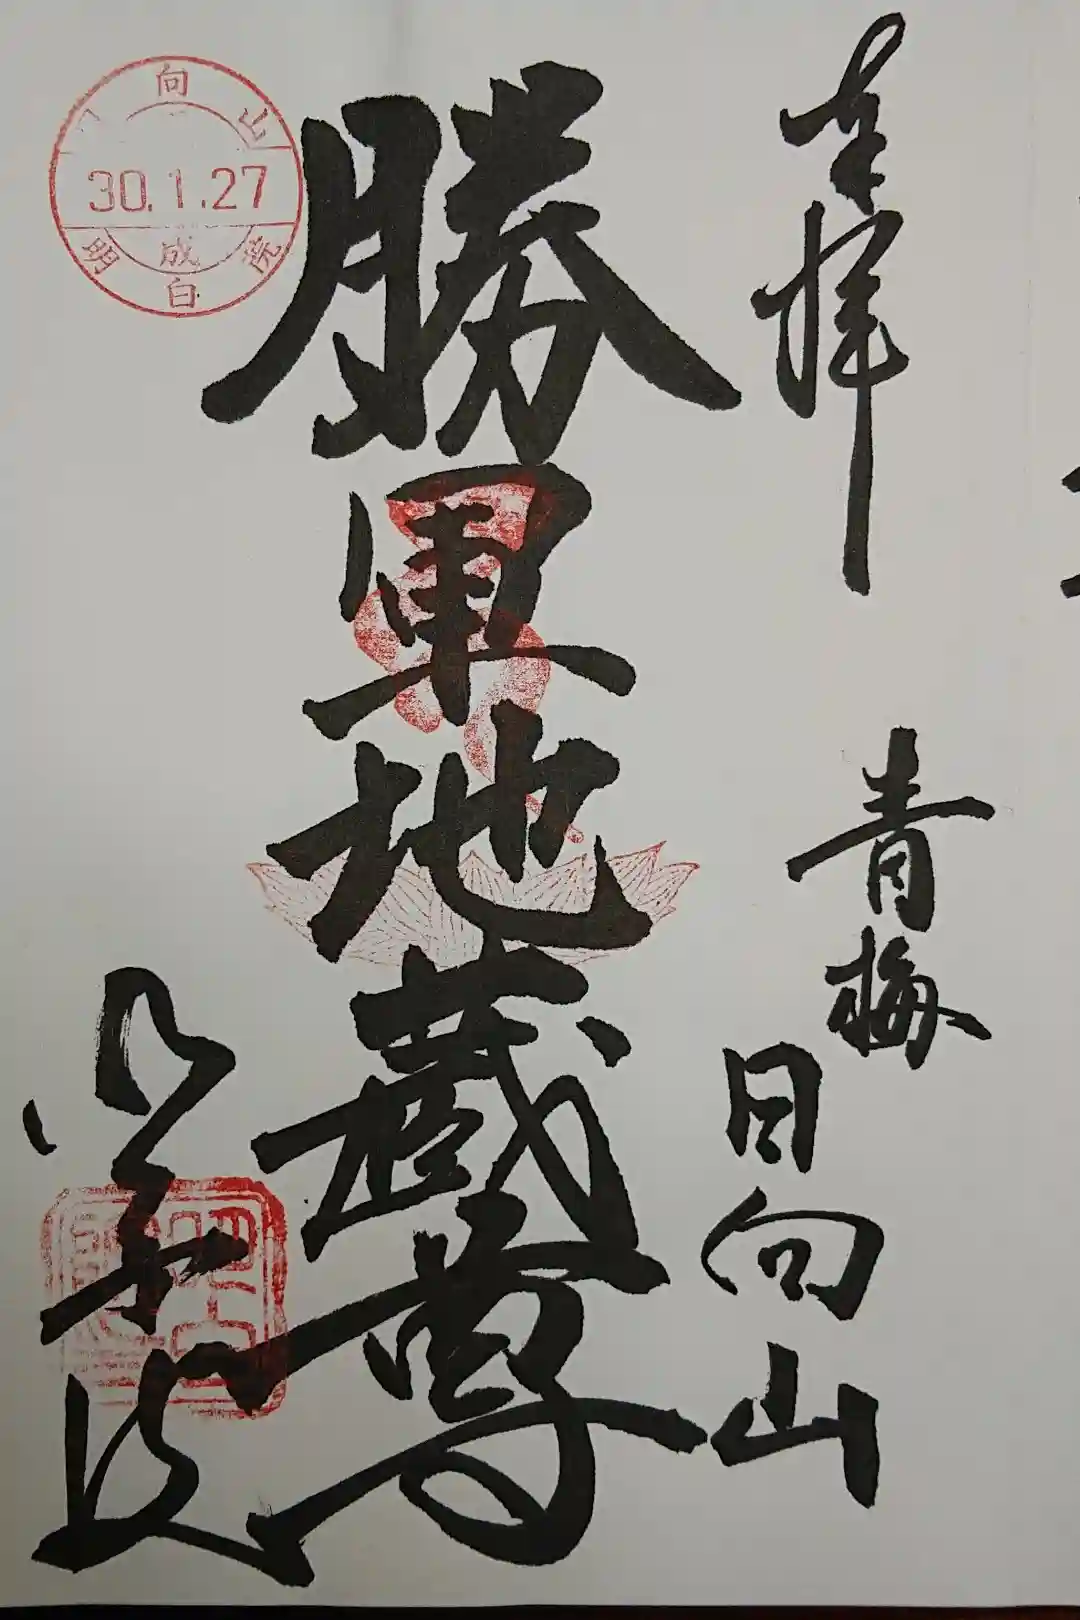 奉拝
青梅
日向山
勝軍地蔵尊
明白院
向山
30.1.27
成
明白院